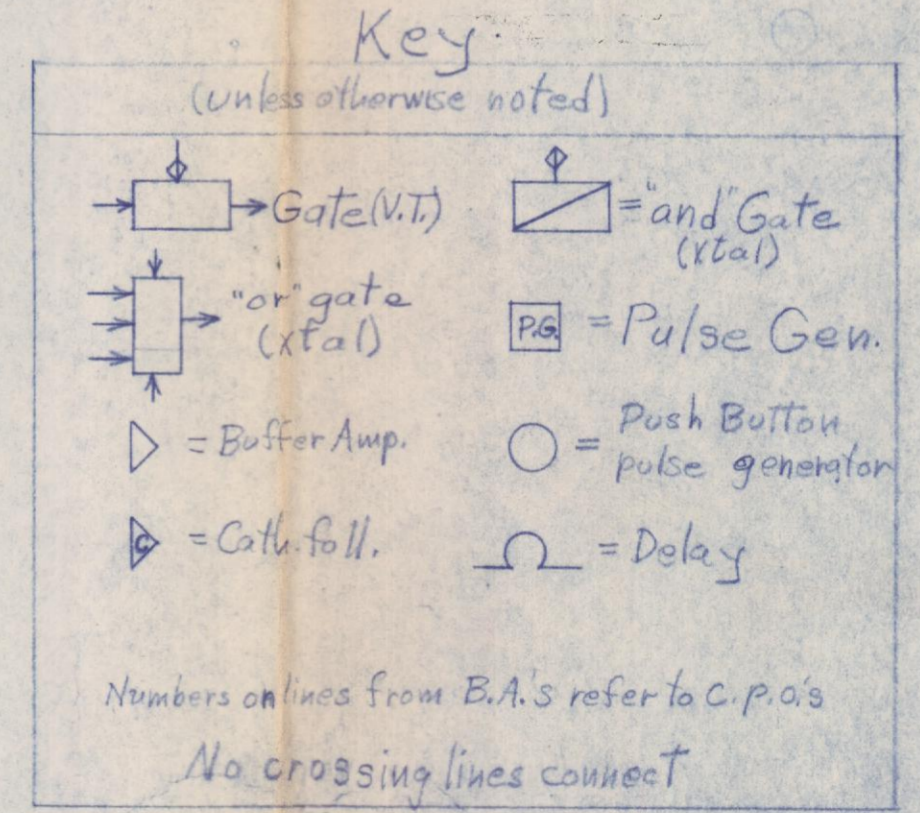 Key
(unless otherwise noted)
Gate (V.T.)
= "and" Gate
(xtal)
"or" gate
(xtal)
P.G. = Pulse Gen.
= Buffer Amp.
= Push Button
pulse generator
C = Cath. foll.
= Delay
Numbers on lines from B.A.'s refer to C.P.O.'s
No crossing lines connect